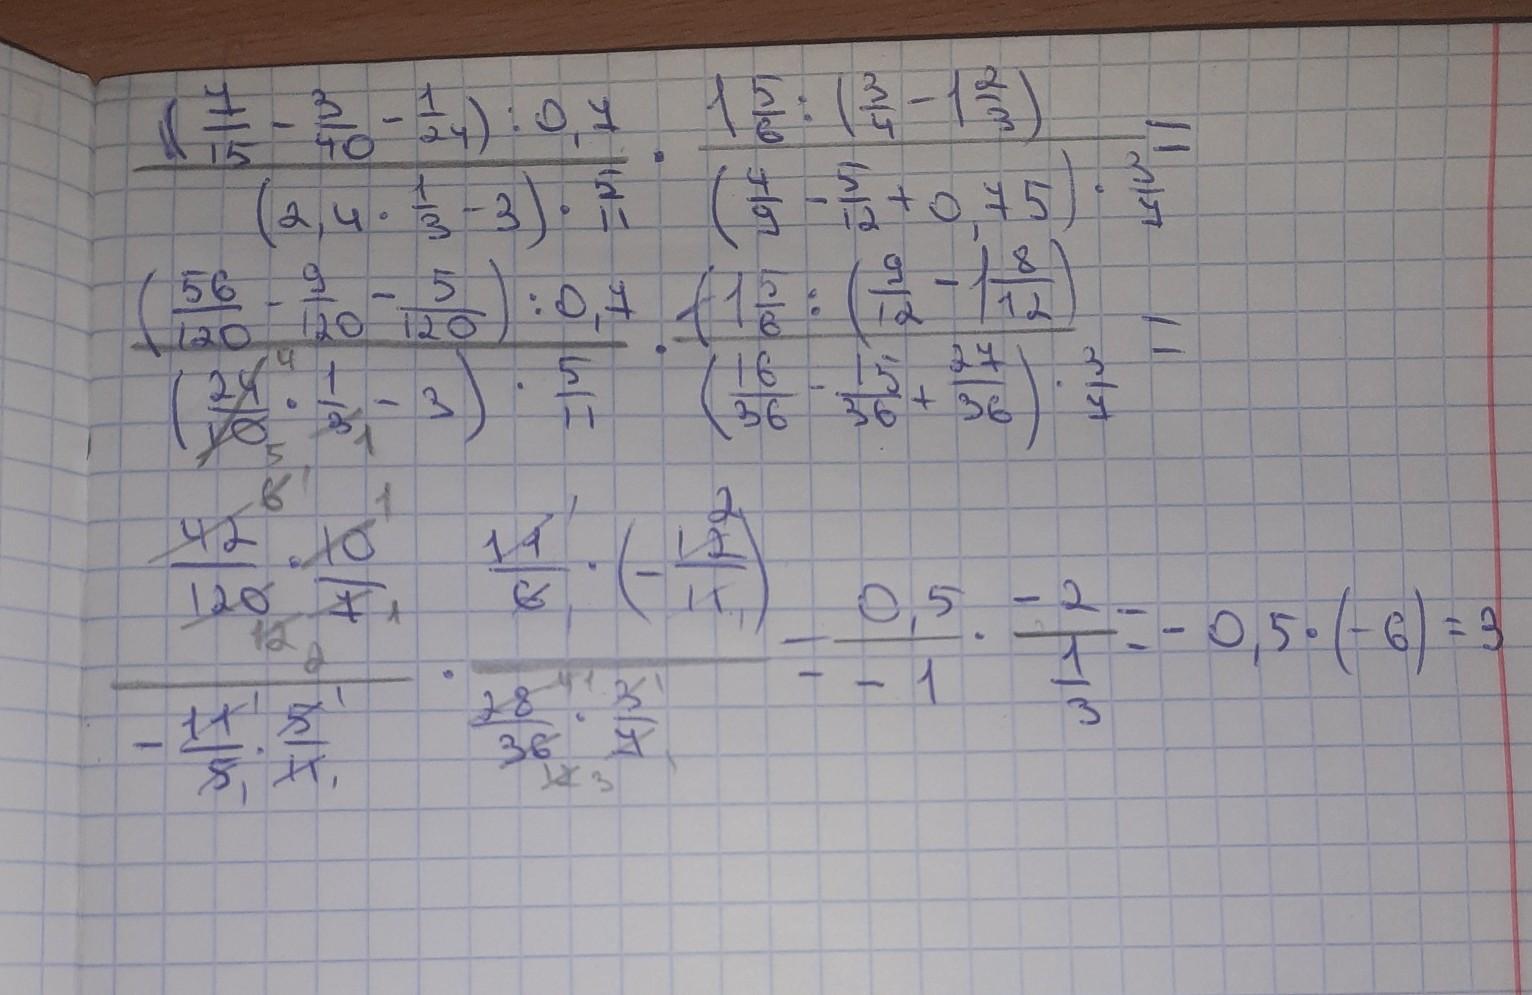 ((7/15 - 3/40 - 1/24) : 0,7) / ((2,4 · 1/3 - 3) · 5/11) · (1 5/6 : (3/4 - 1 2/3)) / ((4/9 - 5/12 + 0,75) · 3/7) =
((56/120 - 9/120 - 5/120) : 0,7) / ((24/10 · 1/3 - 3) · 5/11) · (1 5/6 : (9/12 - 1 8/12)) / ((16/36 - 15/36 + 27/36) · 3/7) =
(42/120 · 10/7) / (- 11/5 · 5/11) · (11/6 · (- 12/11)) / (28/36 · 3/7) = 0,5/-1 · -2/(1/3) = - 0,5 · (-6) = 3